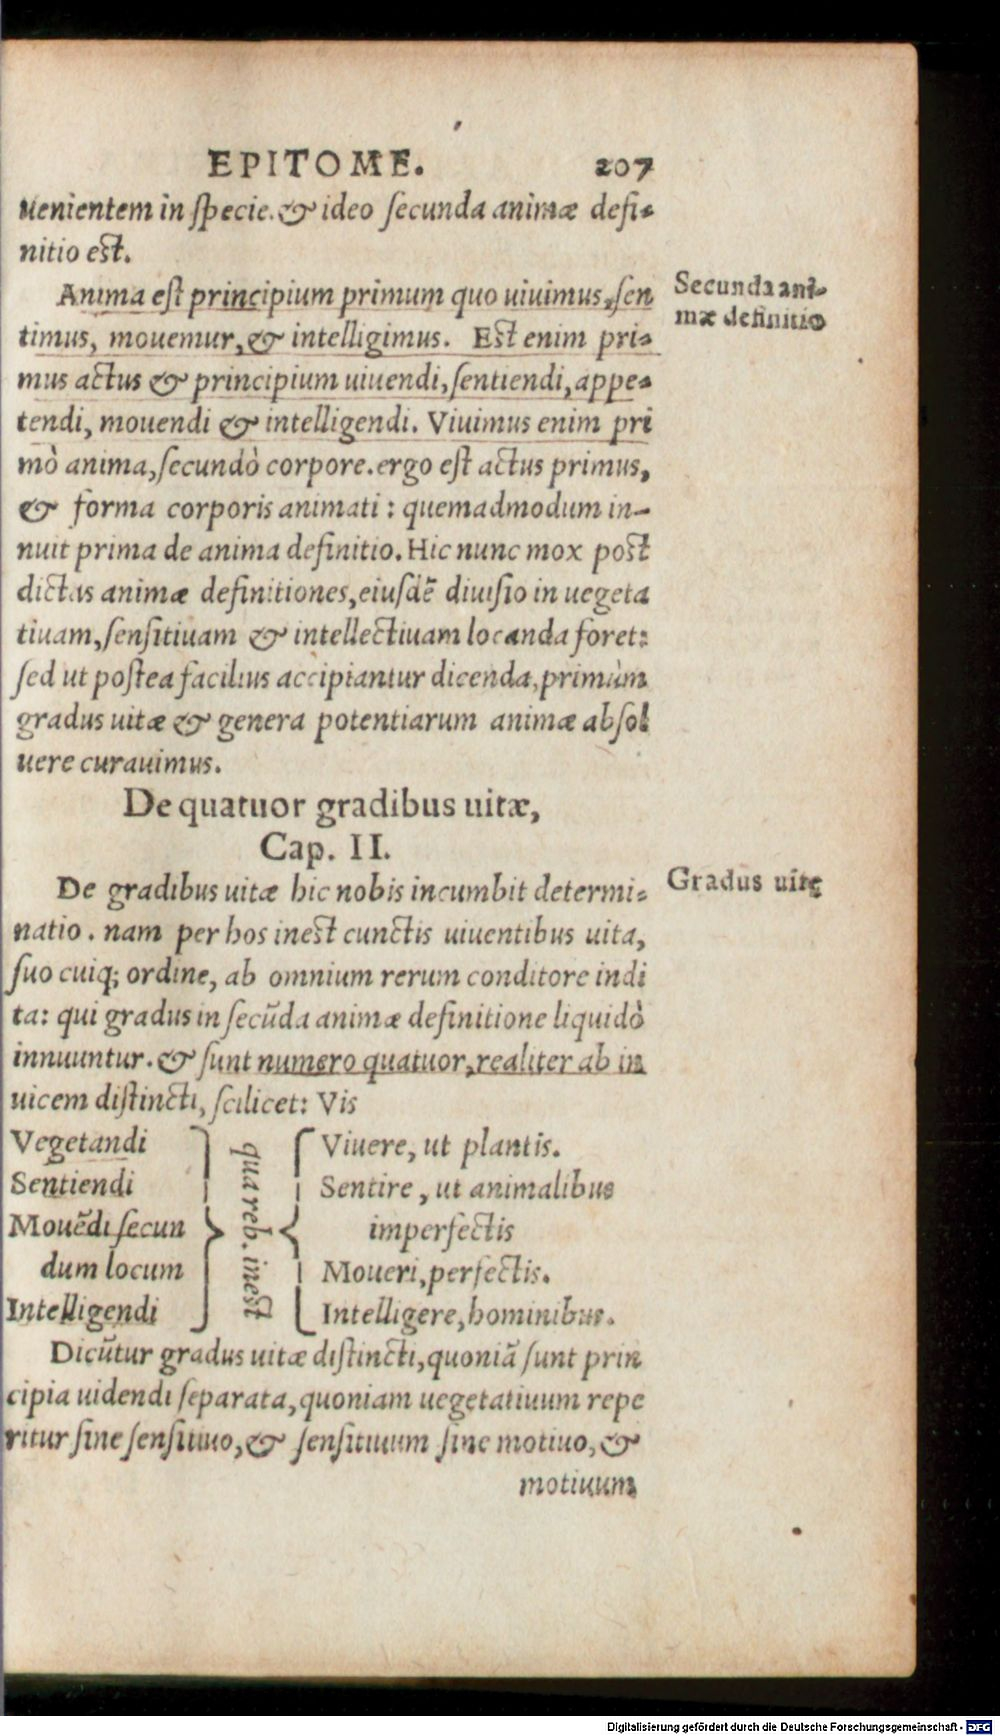 EPITOME. 207
uenientem in specie. & ideo secunda animæ defi-
nitio est.
Anima est principium primum quo uiuimus, sen
timus, mouemur, & intelligimus. Est enim pri-
mus actus & principium uiuendi, sentiendi, appe-
tendi, mouendi & intelligendi. Viuimus enim pri
mò anima, secundò corpore. ergo est actus primus,
& forma corporis animati: quemadmodum in-
nuit prima de anima definitio. Hic nunc mox post
dictas animæ definitiones, eiusdē diuisio in uegeta
tiuam, sensitiuam & intellectiuam locanda foret:
sed ut postea facilius accipiantur dicenda, primùm
gradus uitæ & genera potentiarum animæ absol
uere curauimus.
Secunda ani-
mæ definitio
De quatuor gradibus uitæ,
Cap. II.
De gradibus uitæ hic nobis incumbit determi-
natio. nam per hos inest cunctis uiuentibus uita,
suo cuiq; ordine, ab omnium rerum conditore indi
ta: qui gradus in secūda animæ definitione liquidò
innuuntur. & sunt numero quatuor, realiter ab in
uicem distincti, scilicet: Vis
Gradus uitę
Vegetandi
Sentiendi
Mouēdi secun
dum locum
Intelligendi
qua reb. inest
Viuere, ut plantis.
Sentire, ut animalibus
imperfectis
Moueri, perfectis.
Intelligere, hominibus.
Dicūtur gradus uitæ distincti, quoniā sunt prin
cipia uidendi separata, quoniam uegetatiuum repe
ritur sine sensitiuo, & sensitiuum sine motiuo, &
motiuum
Digitalisierung gefördert durch die Deutsche Forschungsgemeinschaft - DFG